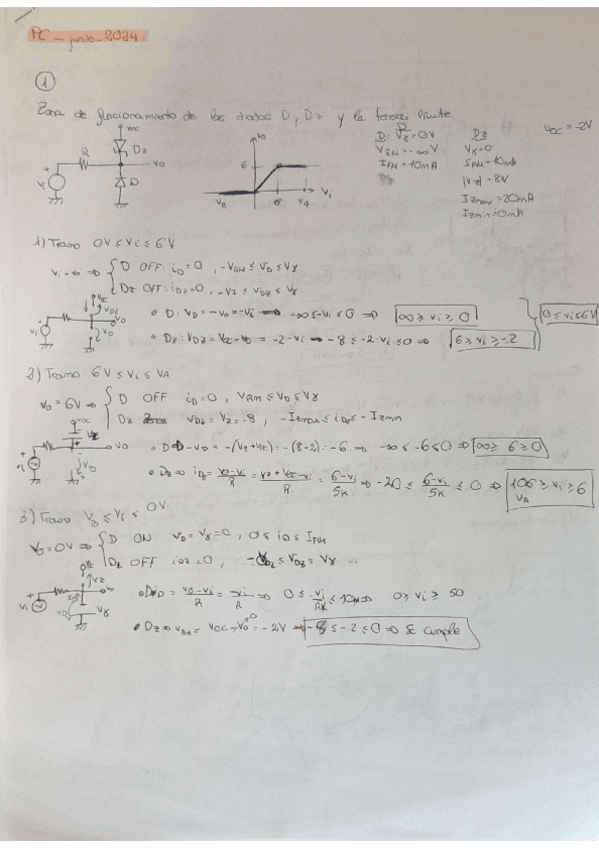 PC - junio - 2024
1
Zona de funcionamiento de los diodos D, Dz y la tensión límite
Vcc
Dz
R
Vo
Vi
D
Vo
6
VB
6
VA
Vi
D: Vγ = 0V
VRM = -∞ V
IFM = 10mA
Dz
Vγ = 0
IFM = 10mA
|Vz| = 8V
Izmax = 20mA
Izmin = 0mA
Vcc = -2V
1) Tramo 0V ≤ Vi ≤ 6V
Vi = Vo ⇒ { D OFF: iD = 0, -VRM ≤ VD ≤ Vγ
Dz OFF: iDz = 0, -Vz ≤ VDz ≤ Vγ
• D: VD = -Vo = -Vi → -∞ ≤ -Vi ≤ 0 ⇒ ∞ ≥ Vi ≥ 0
0 ≤ Vi ≤ 6V
• Dz: VDz = Vcc - Vo = -2 - Vi → -8 ≤ -2 - Vi ≤ 0 ⇒ 6 ≥ Vi ≥ -2
2) Tramo 6V ≤ Vi ≤ VA
Vo = 6V ⇒ { D OFF iD = 0, VRM ≤ VD ≤ Vγ
Dz Zener VDz = Vz = -8, -Izmax ≤ iDz ≤ -Izmin
• D ⇒ -Vo = -(Vz + Vcc) = -(8-2) = -6 ⇒ -∞ ≤ -6 ≤ 0 ⇒ ∞ ≥ 6 ≥ 0
• Dz ⇒ iDz = Vo-Vi / R = Vz + Vcc - Vi / R = 6-Vi / 5K ⇒ -20 ≤ 6-Vi / 5K ≤ 0 ⇒ 106 ≥ Vi ≥ 6
VA
3) Tramo VB ≤ Vi ≤ 0V
Vo = 0V ⇒ { D ON VD = Vγ = 0, 0 ≤ iD ≤ IFM
Dz OFF iDz = 0, -Vz ≤ VDz ≤ Vγ
• D iD = Vo-Vi / R = -Vi / R ⇒ 0 ≤ -Vi / R ≤ 10m ⇒ 0 ≥ Vi ≥ 50
• Dz ⇒ VDz = Vcc - Vo = -2V ⇒ -8 ≤ -2 ≤ 0 ⇒ Se cumple